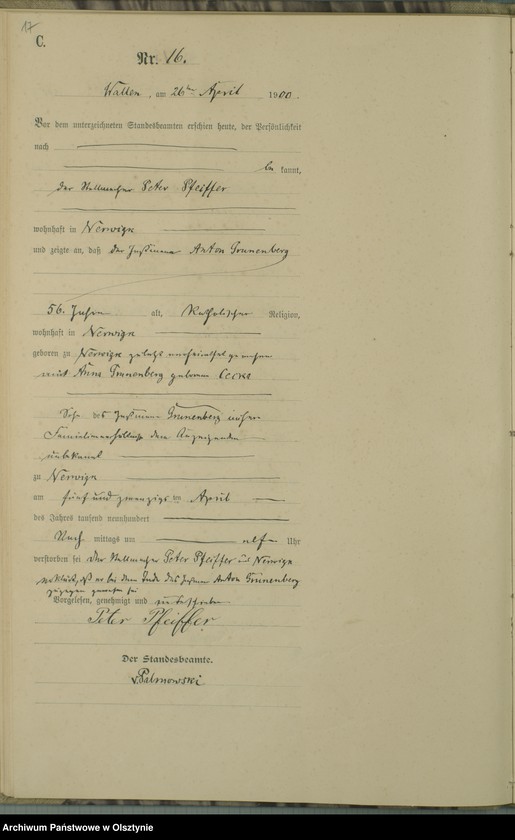 17
C.
Nr. 16.
Wallen, am 26ten April 1900.
Vor dem unterzeichneten Standesbeamten erschien heute, der Persönlichkeit
nach
be kannt,
der Stellmacher Peter Pfeiffer
wohnhaft in Nerwigk
und zeigte an, daß der Instmann Anton Grunenberg
56 Jahre alt, katholischer Religion,
wohnhaft in Nerwigk
geboren zu Nerwigk zuletzt verheirathet gewesen
mit Anna Grunenberg geborene
Sohn des Instmann Grunenberg nähere
Familienverhältnisse dem Anzeigenden
unbekannt
zu Nerwigk
am fünf und zwanzigsten April
des Jahres tausend neunhundert
Nach mittags um elf Uhr
verstorben sei der Stellmacher Peter Pfeiffer aus Nerwigk
erklärt, daß er bei dem Tode des Anton Grunenberg
zugegen gewesen sei
Vorgelesen, genehmigt und unterschrieben
Peter Pfeiffer
Der Standesbeamte.
v. Palmowski
Archiwum Państwowe w Olsztynie